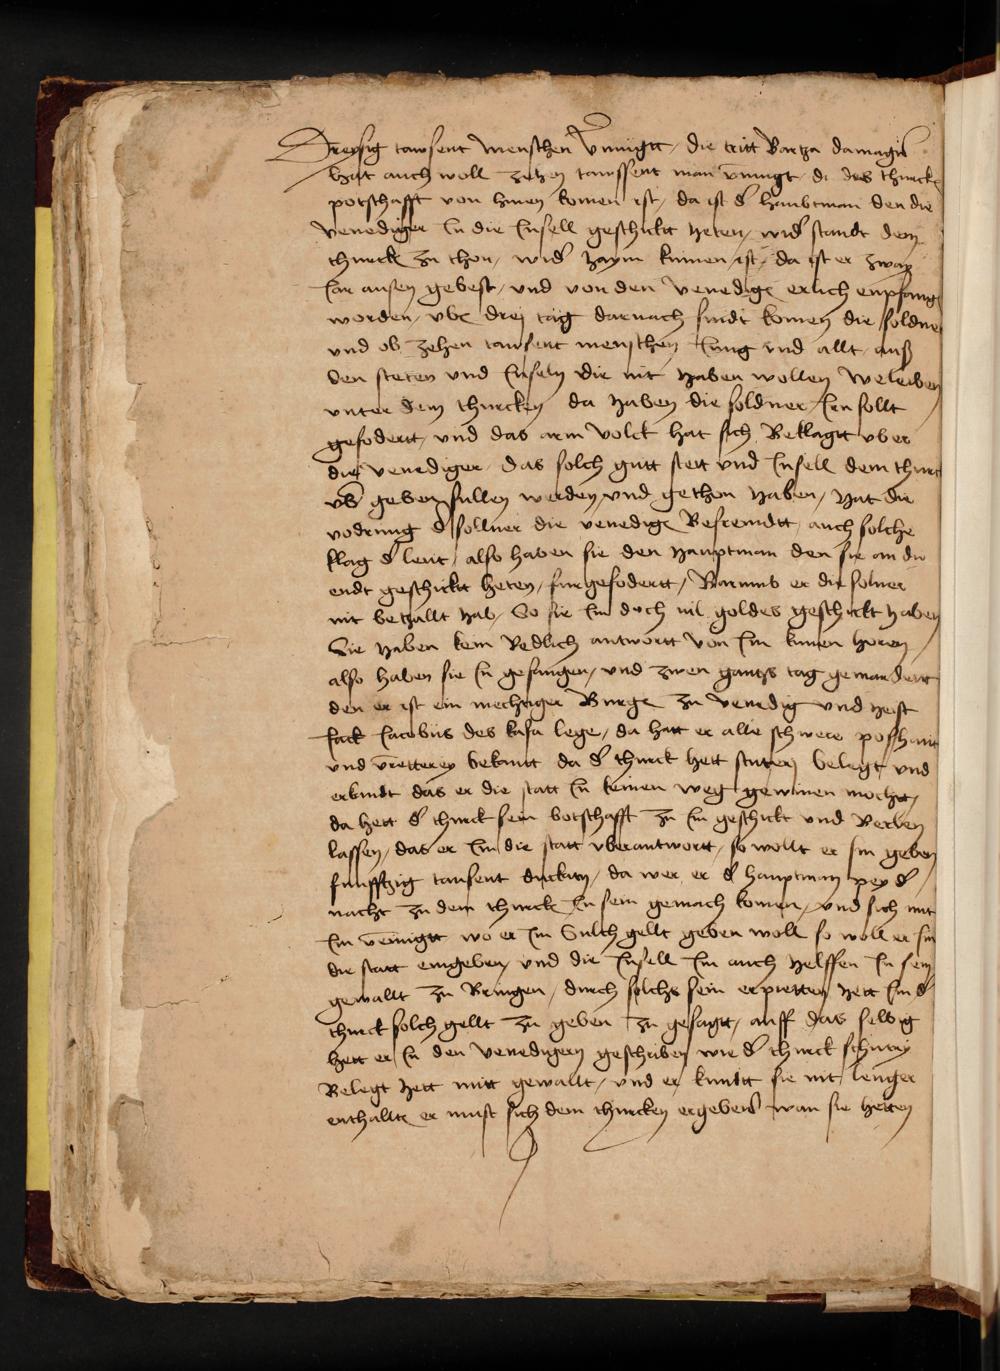 Dreysig tawsent menschen vermugtt / die tritt Bartza damagii
hat auch woll zehen tawssent man vermugt / di des thurck
potschafft von hinen komen ist / da ist d haubtman den die
venediger In die Insell geschickt heten / wid standt dem
thurck zu thon / wid haym kumen ist / da ist er zway
Iar ausen gebest / vnd von den venedig erlich enpfang
worden / vbr drej tag darnach sindt komen die soldner
vnd ob zehen tawsent menschen Iung vnd allt / auß
den steten vnd Inseln die nit haben wollen beleiben
vnter dem thurcken da haben die soldner Irn sollt
gefodertt / vnd das arm volck hat sich Beklagtt vber
die venediger / das solch gutt stett vnd Insell dem thurck
vb geben sullen werden / vnd gethon haben / hat die
vodrung d sollner die venedig Befremdtt / auch solche
klag d leut / also haben sie den hauptman den sie an die
endt geschicktt heten / fur gefodertt / Warumb er die solner
nit betzallt hab / So sie Im doch vil goldes geschickt haben
Sie haben kein Redlich antwortt von Im kunen horen /
also haben sie In gefangen / vnd zwen gantz tag gemardertt
den er ist ein mechtiger Burger zu venedig vnd heist
sack Iacobus des kasa lege / da hatt er alle schwere poshait
vnd vretterey bekantt da d thurck hett scutery belegt vnd
erkindt das er die statt In keinen weg gewinen mocht /
da hett d thurck sein botschafft zu Im geschickt vnd Werben
lassen / das er Im die statt vberantwortt / so wollt er Im geben
funfftzig tausent duckaten / da wer er d hauptman pey d
nacht zu dem thurck In sein gemach komen / vnd sich mit
Im vereinigtt wo er Im Sulch gellt geben woll so woll er Im
die statt eingeben / vnd die Insell Im auch helffen In sein
gewallt zu Bringen / durch solchs sein erpietten hett Im d
thurck solch gellt zu geben zu gesagtt / auff das selbig
hett er In den venedigern geschriben wie d thurck schutry
Belegt hett mitt gewallt / vnd er kundt sie nit lenger
enthallten er must sich dem thurcken ergeben wan sie hetten